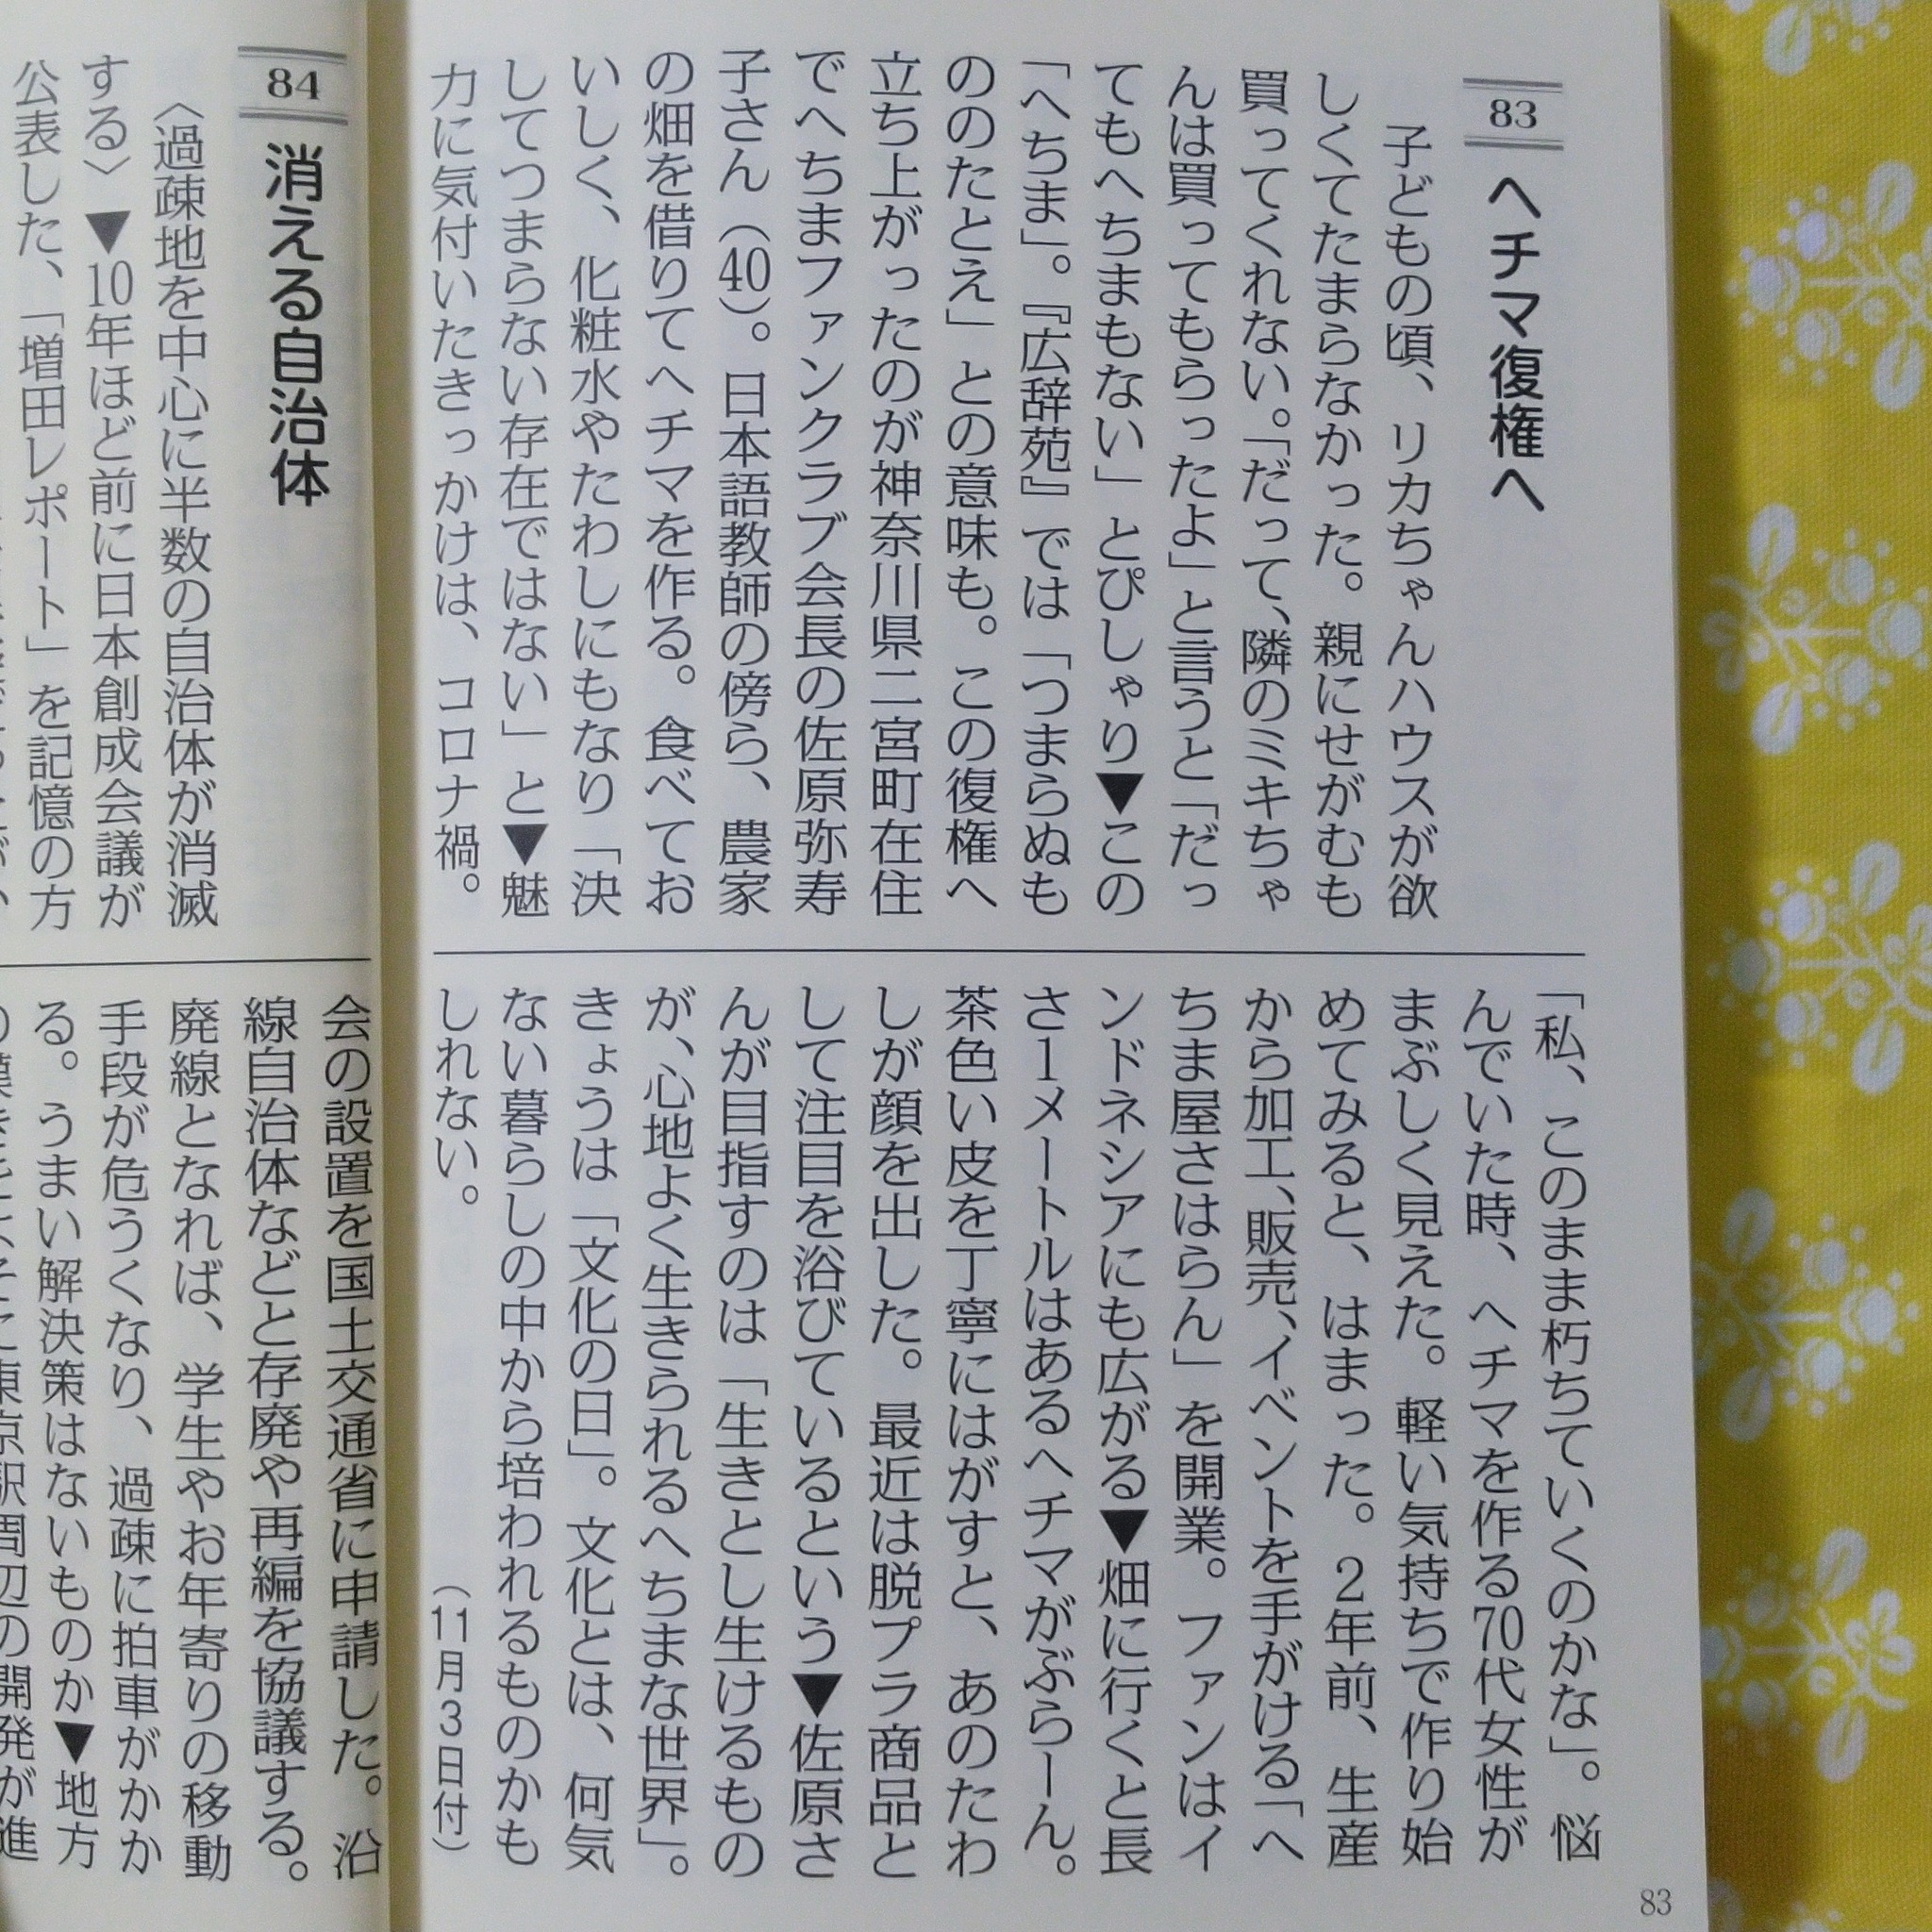 83 ヘチマ復権へ
子どもの頃、リカちゃんハウスが欲
しくてたまらなかった。親にせがむも
買ってくれない。「だって、隣のミキちゃ
んは買ってもらったよ」と言うと「だっ
てもへちまもない」とぴしゃり▼この
「へちま」。『広辞苑』では「つまらぬも
ののたとえ」との意味も。この復権へ
立ち上がったのが神奈川県二宮町在住
でへちまファンクラブ会長の佐原弥寿
子さん（40）。日本語教師の傍ら、農家
の畑を借りてヘチマを作る。食べてお
いしく、化粧水やたわしにもなり「決
してつまらない存在ではない」と▼魅
力に気付いたきっかけは、コロナ禍。
「私、このまま朽ちていくのかな」。悩
んでいた時、ヘチマを作る70代女性が
まぶしく見えた。軽い気持ちで作り始
めてみると、はまった。2年前、生産
から加工、販売、イベントを手がける「へ
ちま屋さはらん」を開業。ファンはイ
ンドネシアにも広がる▼畑に行くと長
さ1メートルはあるヘチマがぶらーん。
茶色い皮を丁寧にはがすと、あのたわ
しが顔を出した。最近は脱プラ商品と
して注目を浴びているという▼佐原さ
んが目指すのは「生きとし生けるもの
が、心地よく生きられるへちまな世界」。
きょうは「文化の日」。文化とは、何気
ない暮らしの中から培われるものかも
しれない。
（11月3日付）
83
84 消える自治体
〈過疎地を中心に半数の自治体が消滅
する〉▼10年ほど前に日本創成会議が
公表した、「増田レポート」を記憶の方
会の設置を国土交通省に申請した。沿
線自治体などと存廃や再編を協議する。
廃線となれば、学生やお年寄りの移動
手段が危うくなり、過疎に拍車がかか
る。うまい解決策はないものか▼地方